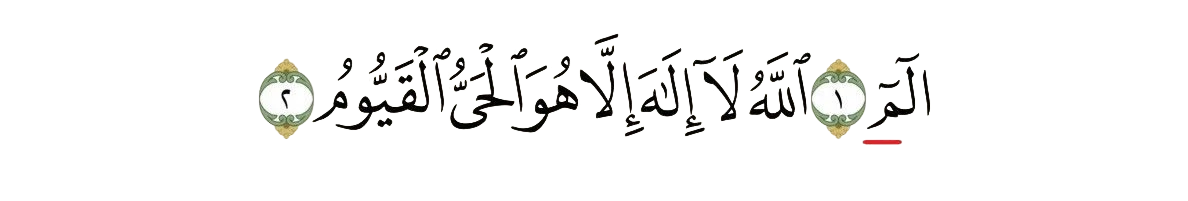 الٓمٓ ١ ٱللَّهُ لَآ إِلَٰهَ إِلَّا هُوَ ٱلْحَىُّ ٱلْقَيُّومُ ٢